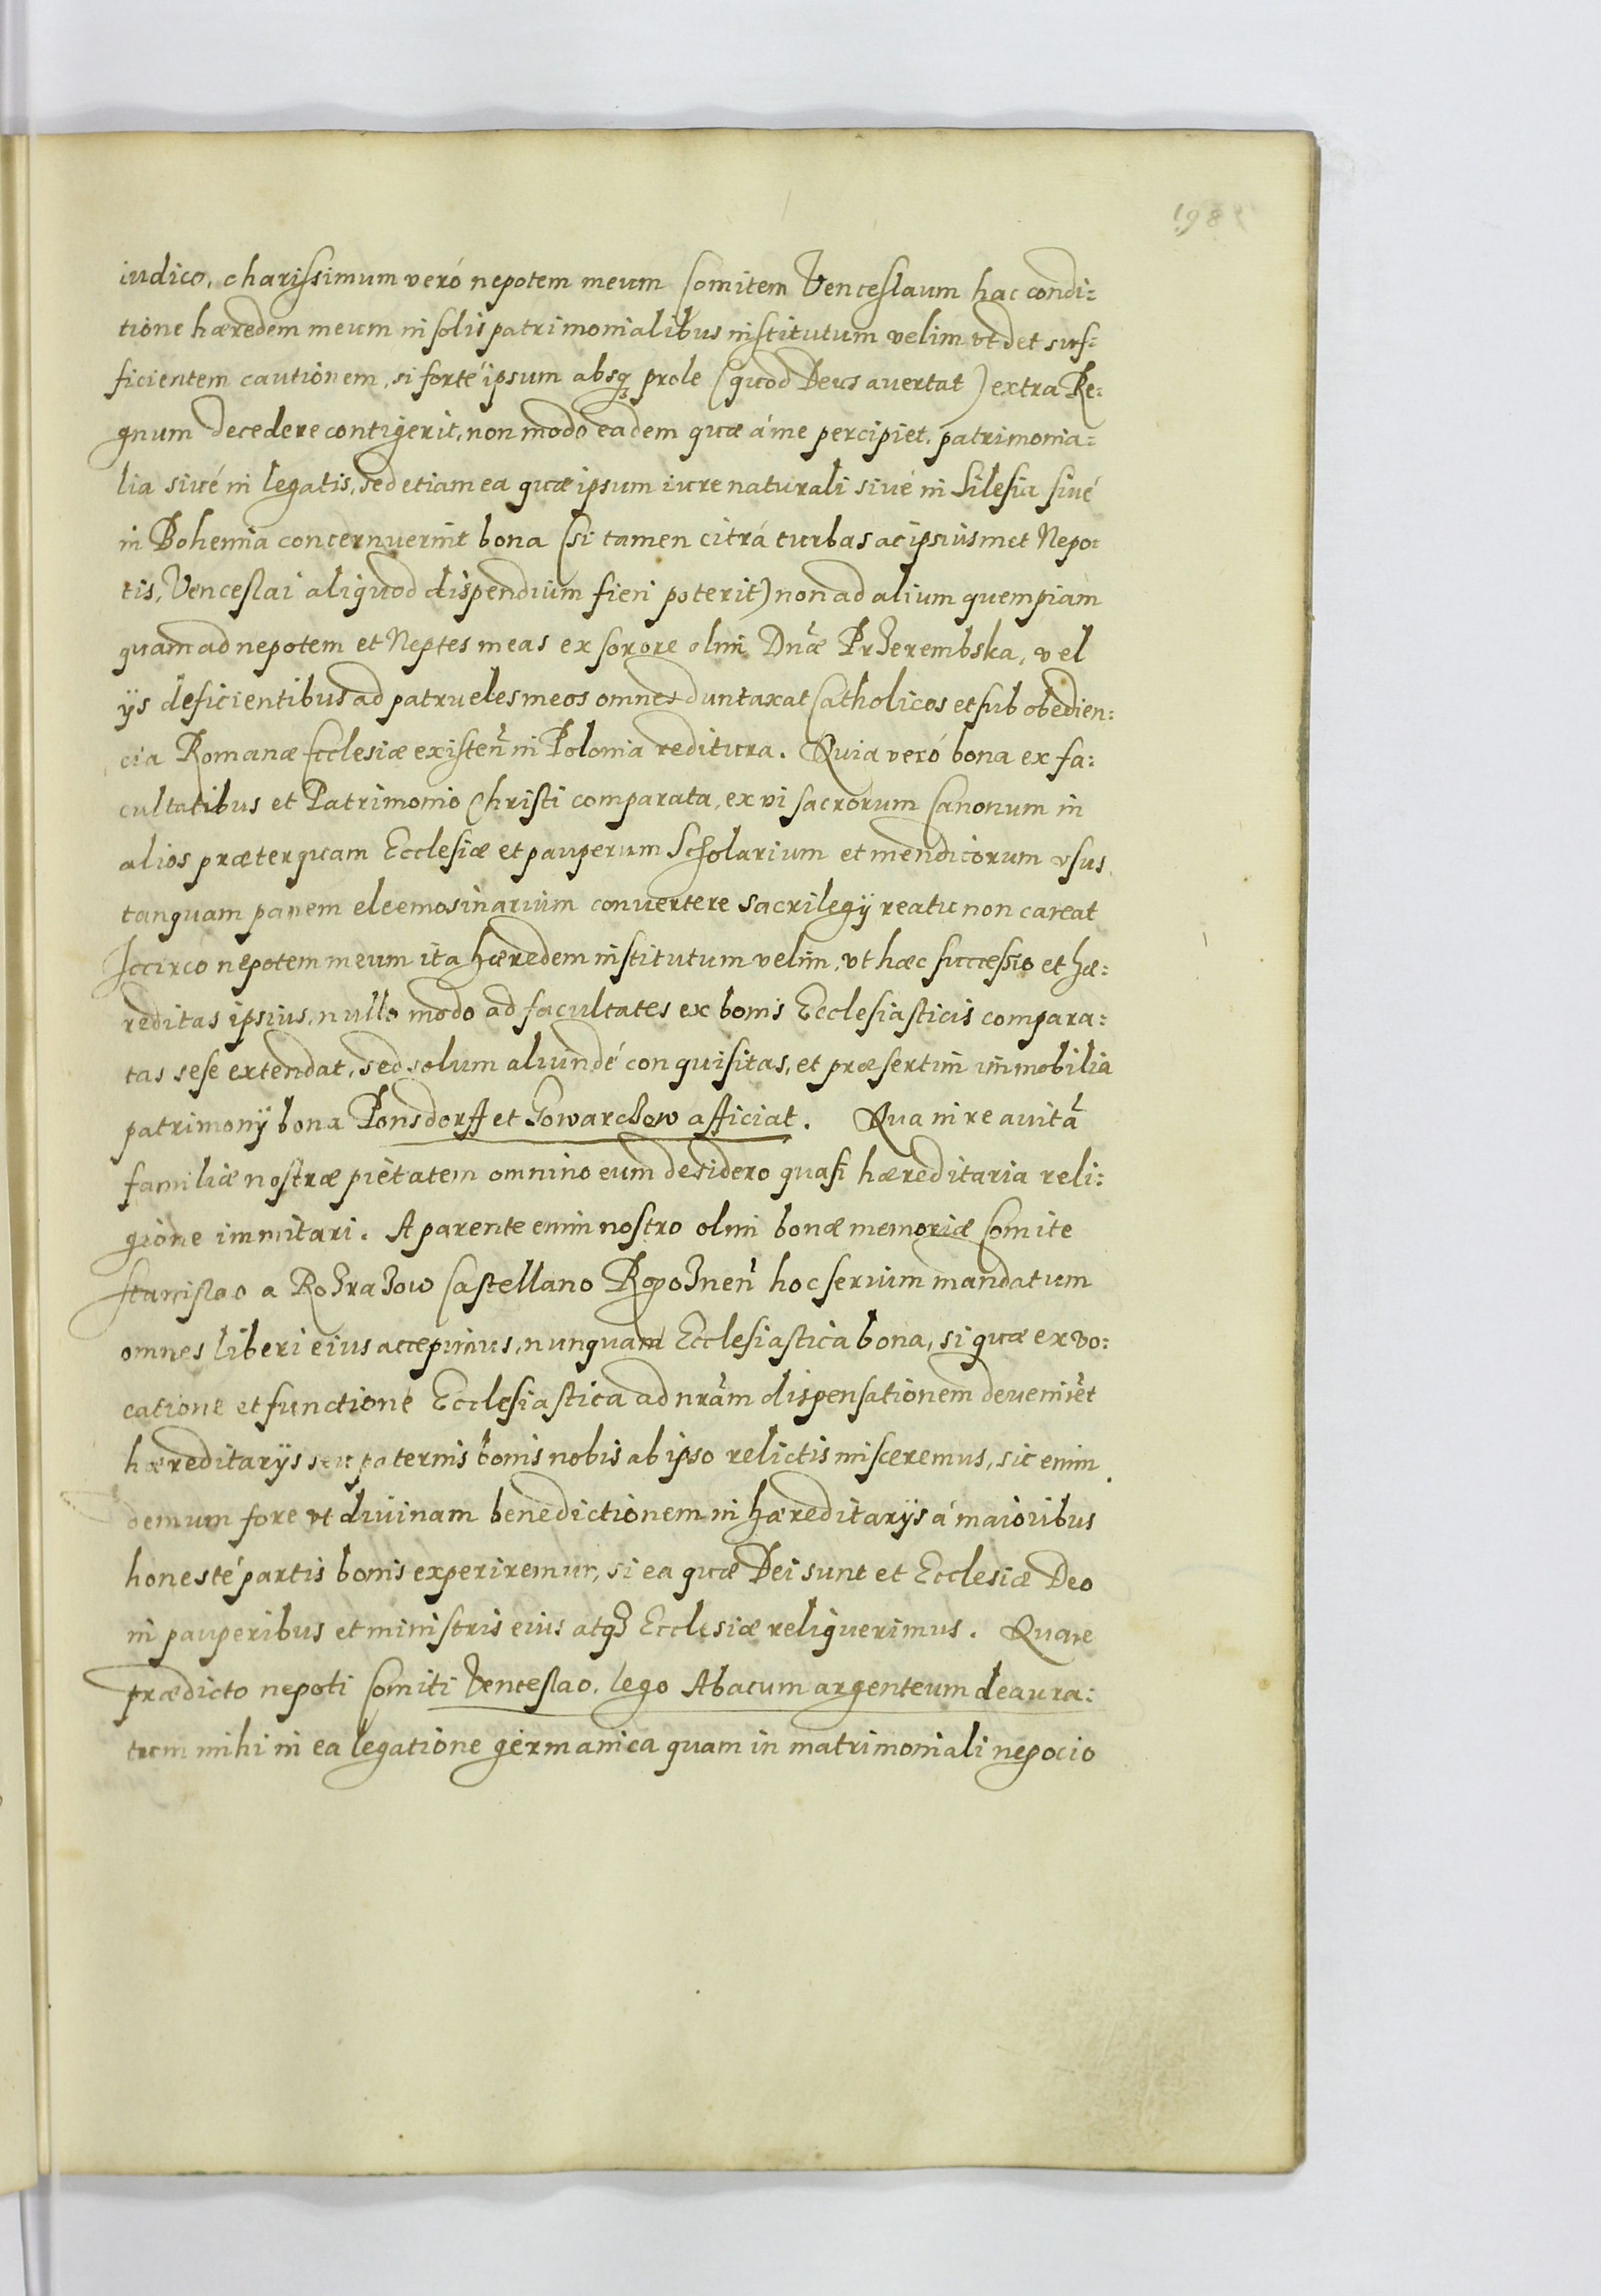 iudico, charissimum veró nepotem meum Comitem Venceslaum hac condi:
tione hæredem meum in solis patrimonialibus institutum velim vt det suf:
ficientem cautionem, si forte ipsum absq prole (quod Deus auertat) extra Re:
gnum decedere contigerit, non modo eadem quæ á me percipiet, patrimonia:
lia siué in legatis, sed etiam ea quæ ipsum iure naturali siué in Silesia siué
in Bohemia concernuerint bona (si tamen citrá turbas ac ipsiusmet Nepo:
tis, Venceslai aliquod dispendium fieri poterit) non ad alium quempiam
quam ad nepotem et Neptes meas ex sorore olim Dnæ Przerembska, vel
ijs deficientibus ad patrueles meos omnes duntaxat Catholicos et sub obedien:
cia Romanæ Ecclesiæ existeñ in Polonia reditura. Quia veró bona ex fa:
cultatibus et Patrimonio Christi comparata, ex vi sacrorum Canonum in
alios præterquam Ecclesiæ et pauperum Scholarium et mendicorum vsus,
tanquam panem eleemosinarium conuertere sacrilegij reatu non careat
Iccirco nepotem meum ita hæredem institutum velim, vt hæc successio et hæ:
reditas ipsius, nullo modo ad facultates ex bonis Ecclesiasticis compara:
tas sese extendat, sed solum aliundé conquisitas, et præsertim immobilia
patrimonij bona Ponsdorff et Gowarchow afficiat. Qua in re auitã
familiæ nostræ pietatem omnino eum desidero quasi hæreditaria reli:
gione immitari. A parente enim nostro olim bonæ memoriæ Comite
Stanislao a Rozrazow Castellano Rogozneñ hoc serium mandatum
omnes liberi eius accepimus, nunquam Ecclesiastica bona, si quæ ex vo:
catione et functione Ecclesiastica ad nrãm dispensationem deueniẽt
hæreditarijs seu paternis bonis nobis ab ipso relictis misceremus, sic enim
demum fore vt diuinam benedictionem in hæreditarijs á maioribus
honesté partis bonis experiremur, si ea quæ Dei sunt et Ecclesiæ Deo
in pauperibus et ministris eius atqz Ecclesiæ reliquerimus. Quare
prædicto nepoti Comiti Venceslao, lego Abacum argenteum deaura:
tum mihi in ea legatione germanica quam in matrimoniali negocio